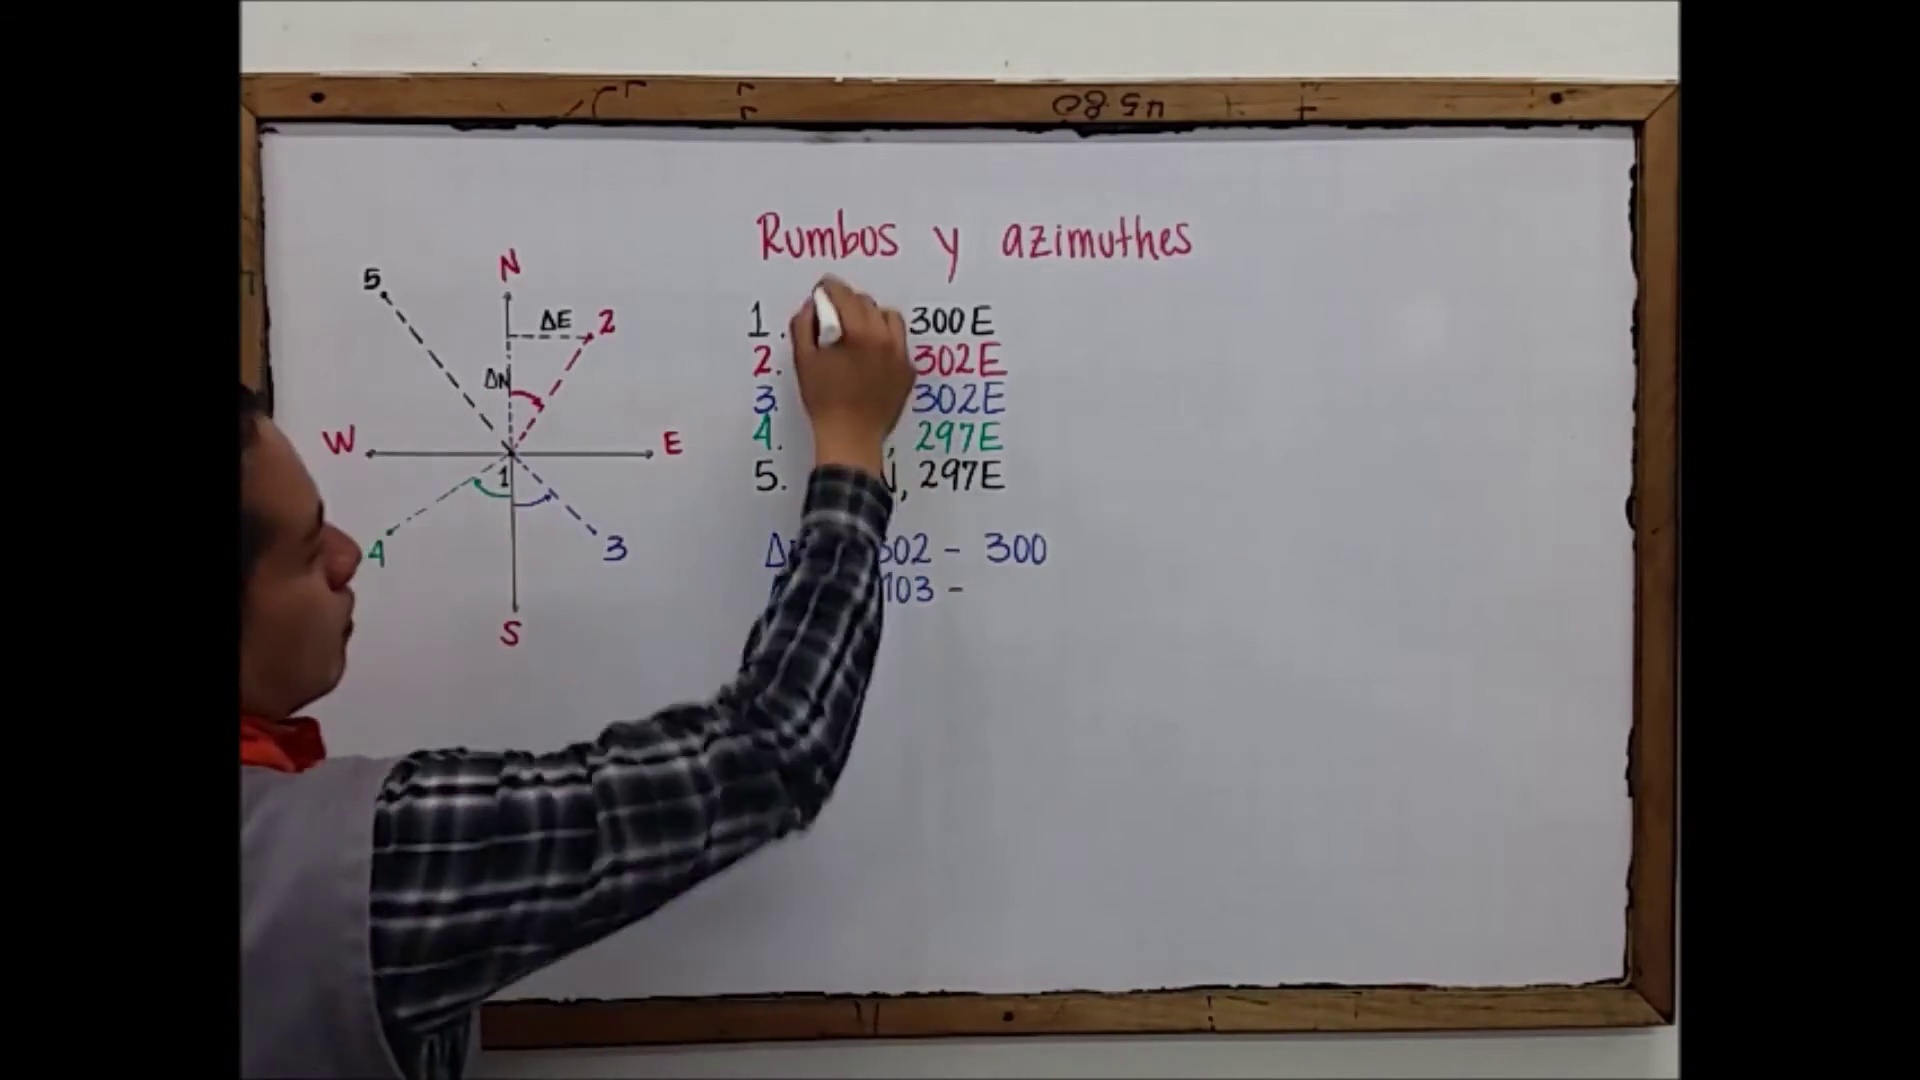 Rumbos y azimuthes
N
5
ΔE 2
ΔN
W E
1
4 3
S
1. 300E
2. 302E
3. 302E
4. , 297E
5. N, 297E
Δ 302 - 300
103 -